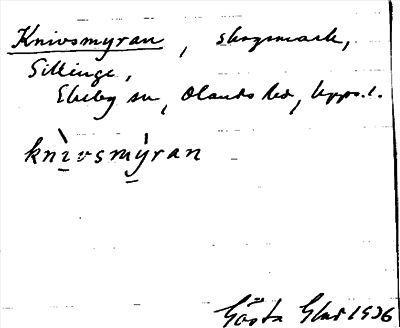 Knivsmyran, skogsmark,
Sillinge,
Ekeby sn, Olands hd, Upps. l.
knìvsmỳran
Gösta Glad 1936